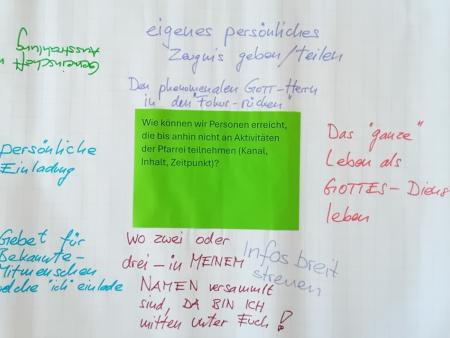 eigenes persönliches
Zeugnis geben/teilen
Gemeinschaft
Ausstrahlung
Den phänomenalen GOTT-Herrn
in den "Fokus-rücken"
Wie können wir Personen erreicht,
die bis anhin nicht an Aktivitäten
der Pfarrei teilnehmen (Kanal,
Inhalt, Zeitpunkt)?
persönliche
Einladung
Das "ganze"
Leben als
GOTTES-Diens
leben
Gebet für
Bekannte-
Mitmenschen
welche "ich" einlade
Wo zwei oder
drei – in MEINEM
NAMEN versammelt
sind, DA BIN ICH
mitten unter Euch!
Infos breit
streuen